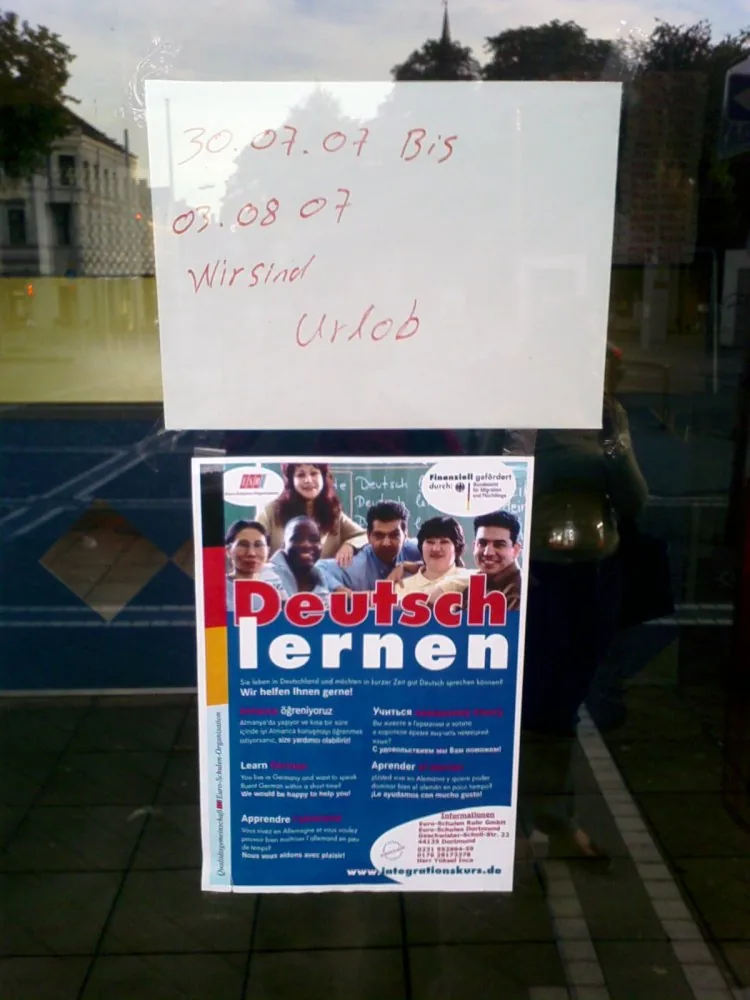 30.07.07 Bis
03.08 07
Wir sind
Urlob
Finanziell gefördert
durch:
Bundesamt
für Migration
und Flüchtlinge
Deutsch
Deutsch
lernen
Sie leben in Deutschland und möchten in kurzer Zeit gut Deutsch sprechen können?
Wir helfen Ihnen gerne!
öğreniyoruz
Almanya'da yaşıyor ve kısa bir süre
içinde iyi Almanca konuşmayı öğrenmek
istiyorsanız, size yardımcı olabiliriz!
Learn
You live in Germany and want to speak
fluent German within a short time?
We would be happy to help you!
Apprendre
Vous vivez en Allemagne et vous voulez
pouvoir bien maîtriser l'allemand en peu
de temps?
Nous vous aidons avec plaisir!
Учиться
Вы живете в Германии и хотите
в короткое время выучить немецкий
язык?
С удовольствием мы Вам поможем!
Aprender
¿Usted vive en Alemania y quiere poder
dominar bien el alemán en poco tiempo?
¡Le ayudamos con mucho gusto!
Informationen
Euro-Schulen Ruhr GmbH
Euro-Schulen Dortmund
Geschwister-Scholl-Str. 22
44135 Dortmund
Herr Yüksel Ince
www.integrationskurs.de
Qualitätsgemeinschaft Euro-Schulen-Organisation